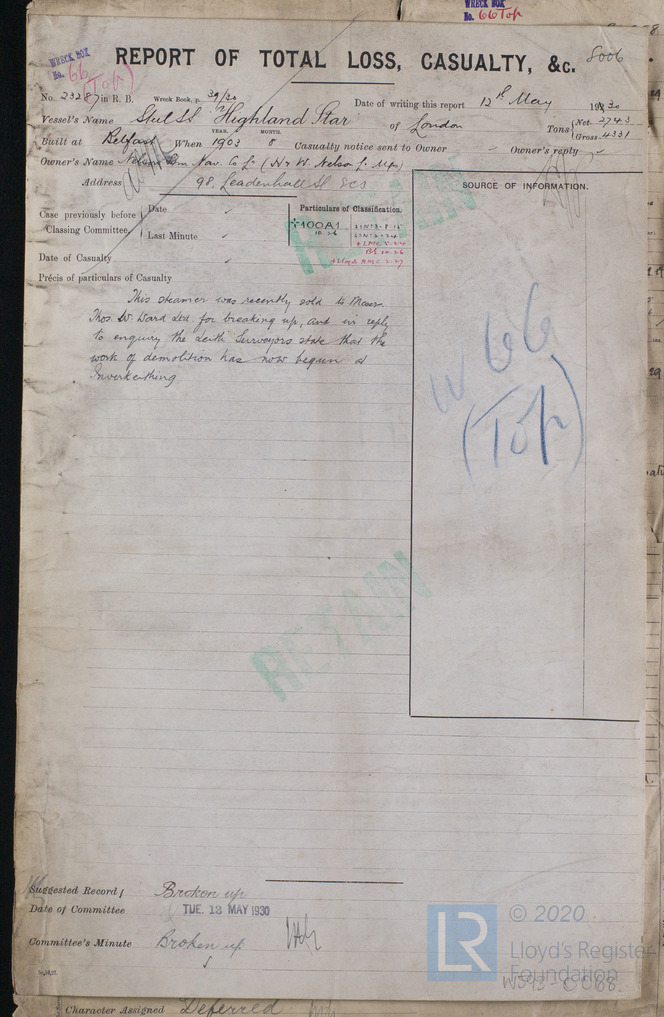 WRECK BOX
No. 66 Top
WRECK BOX
No. 66
(Top)
REPORT OF TOTAL LOSS, CASUALTY, &c. 8006
No. 23287 in R. B. Wreck Book, p. 39/30 Date of writing this report 12th May 1930
Vessel's Name Steel SS "Highland Star" of London Tons { Net 2743
Gross 4331
Built at Belfast When YEAR. 1903 MONTH. 8 Casualty notice sent to Owner - Owner's reply -
Owner's Name Nelson Stm Nav. Co Ld (H & W. Nelson Ld Mgrs)
Address 98, Leadenhall St EC3
SOURCE OF INFORMATION.
Case previously before Classing Committee, { Date
Last Minute
Particulars of Classification.
+100A1
10.26
+LMC 5.24
BS 10.26
+Lloyds RMC 2.27
Date of Casualty
Précis of particulars of Casualty
This steamer was recently sold to Messrs
Thos. W. Ward Ltd for breaking up, and in reply
to enquiry the Leith Surveyors state that the
work of demolition has now begun at
Inverkeithing
RETAIN
W 66
(Top)
RETAIN
Suggested Record Broken up
Date of Committee TUE. 13 MAY 1930
Committee's Minute Broken up
LR
© 2020
Lloyd's Register
Foundation
W593-0068
Character Assigned Deferred